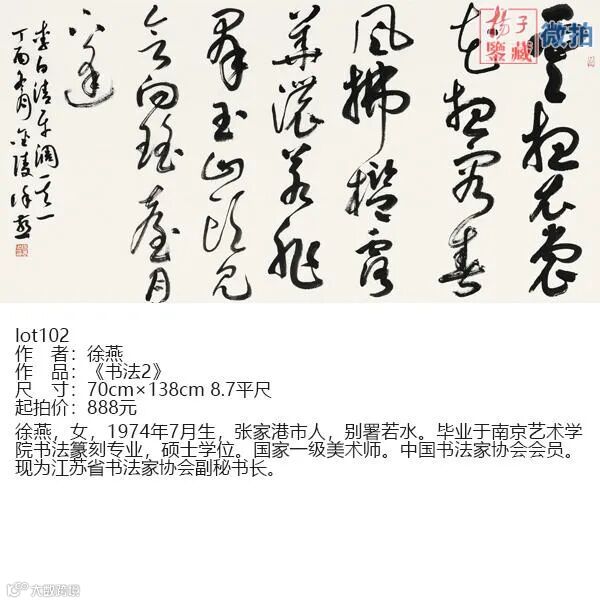 雲想衣裳
花想容春
風拂檻露
華濃若非
群玉山頭見
會向瑤臺月
下逢
李白清平调一
金陵徐燕
杨子
鉴藏
微拍
lot102
作 者：徐燕
作 品：《书法2》
尺 寸：70cm×138cm 8.7平尺
起拍价：888元
徐燕，女，1974年7月生，张家港市人，别署若水。毕业于南京艺术学
院书法篆刻专业，硕士学位。国家一级美术师。中国书法家协会会员。
现为江苏省书法家协会副秘书长。
大数跨境